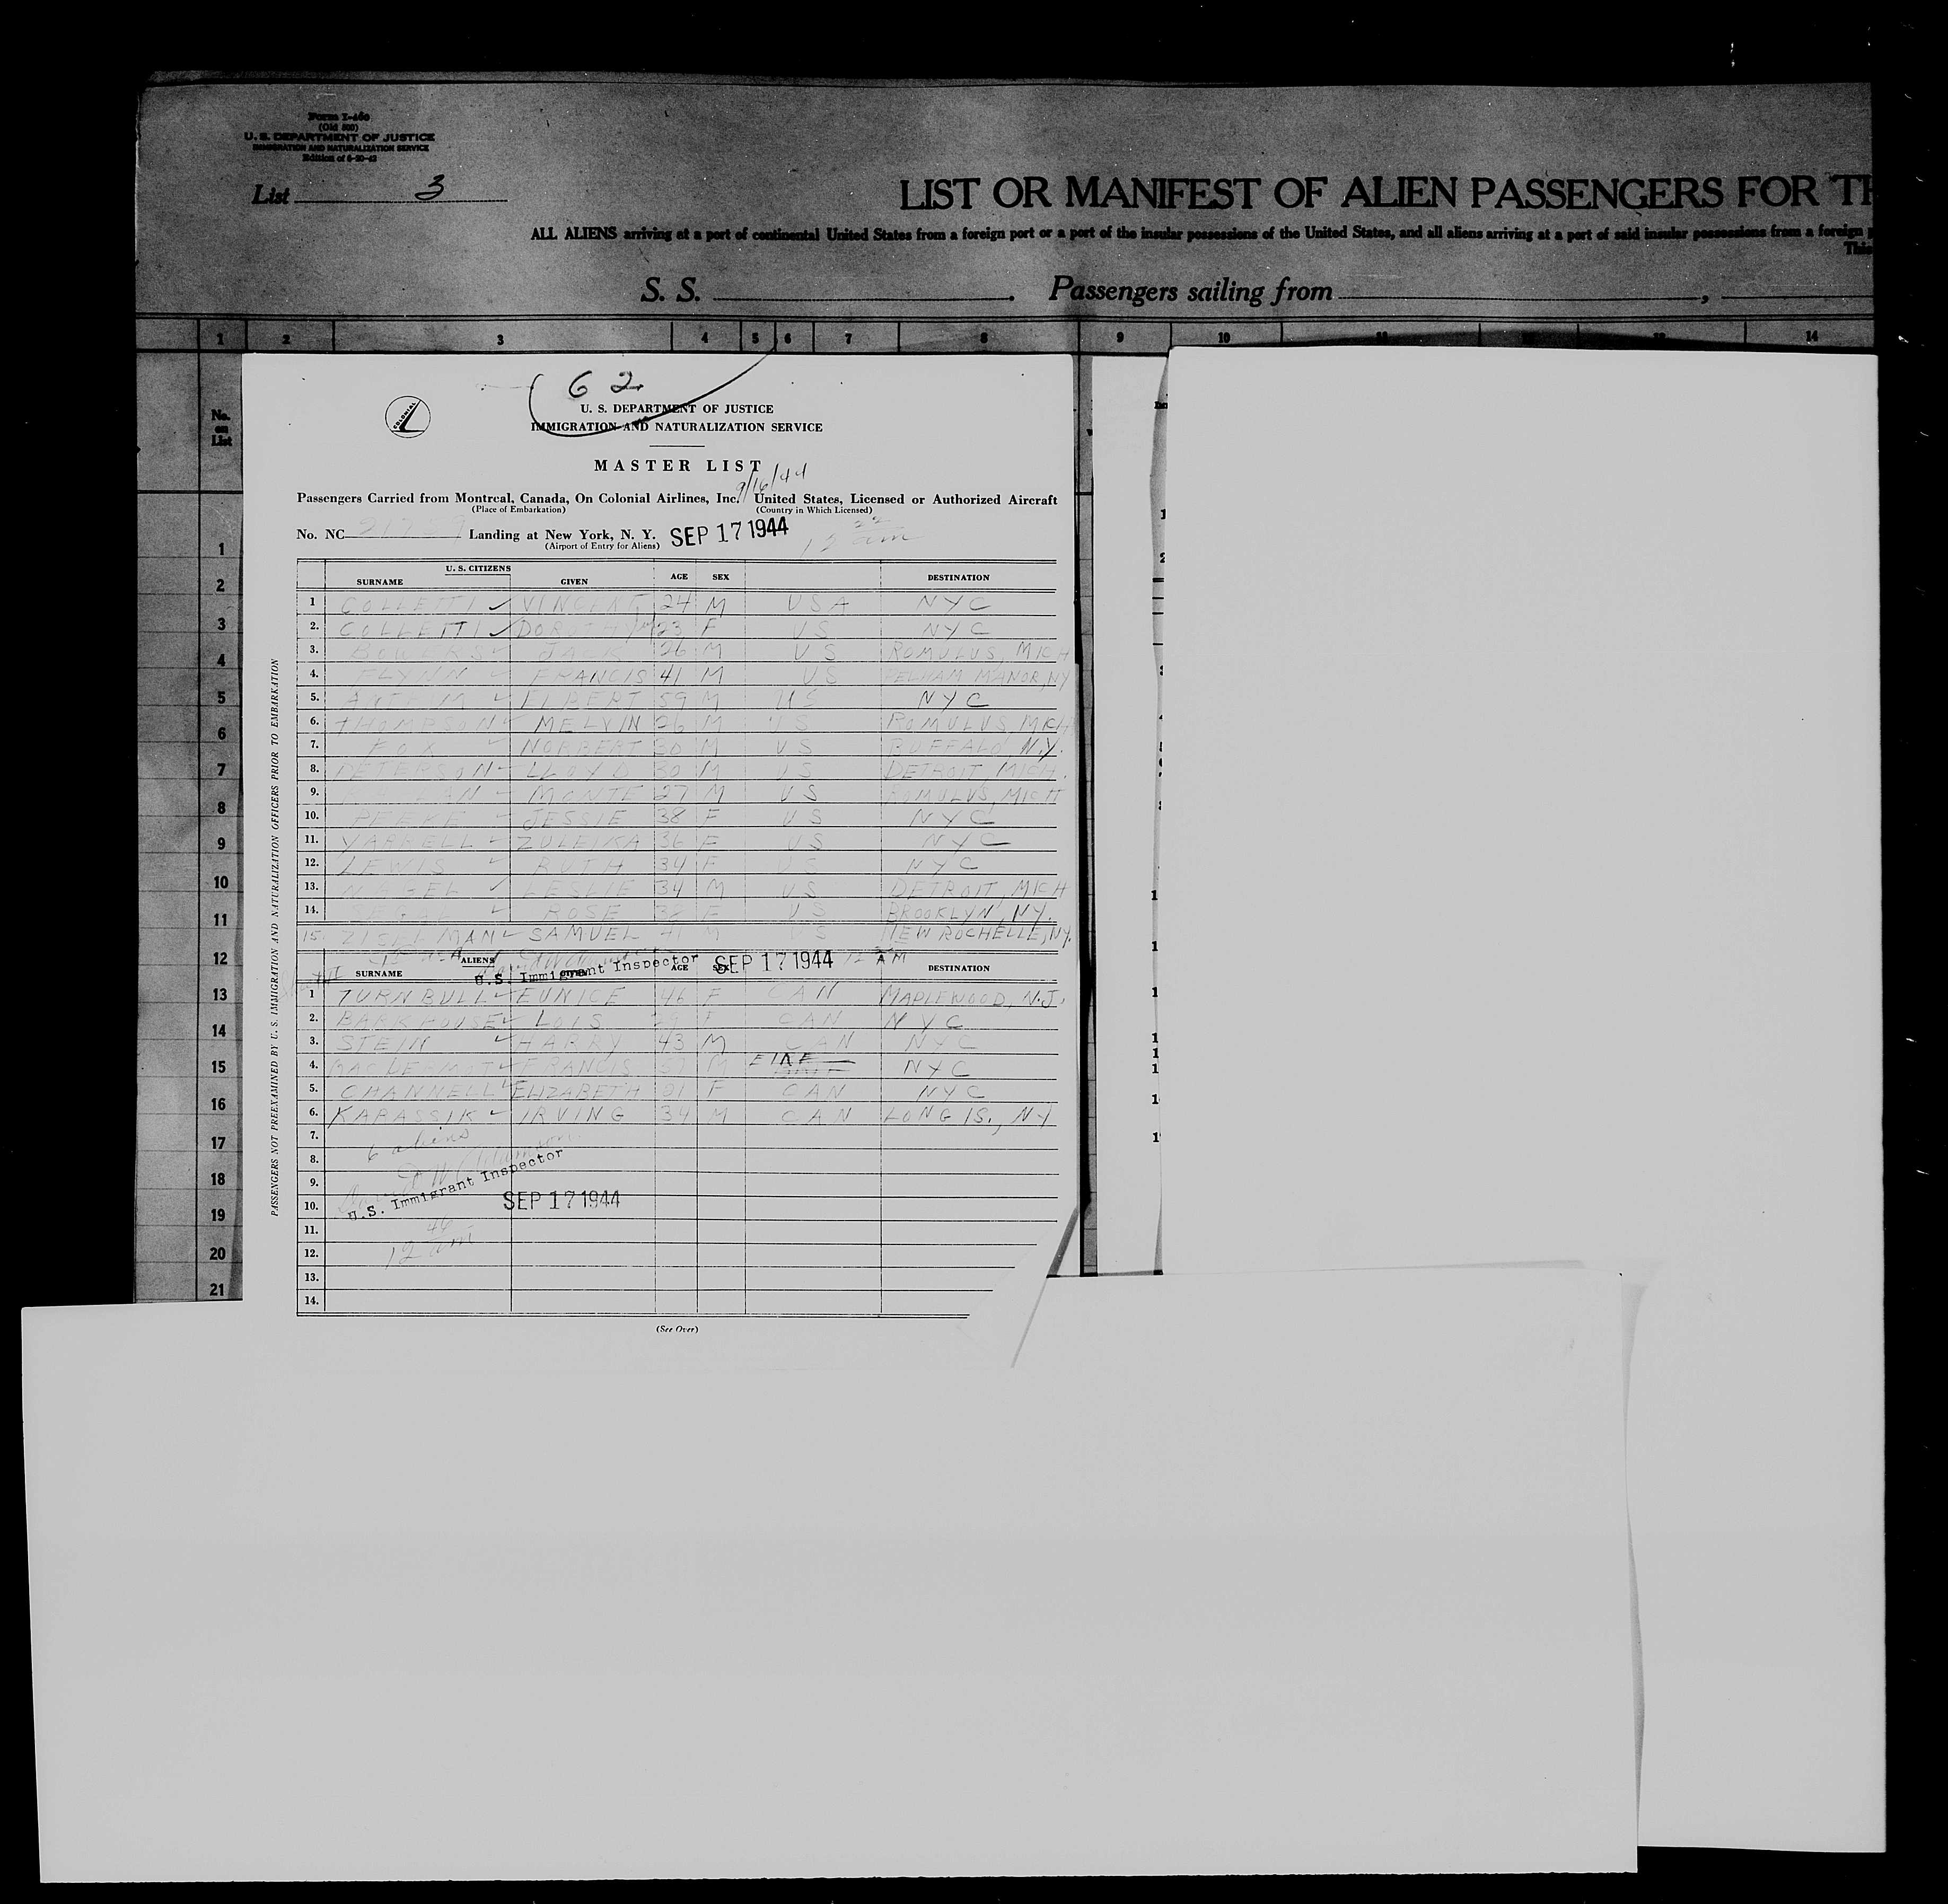 Form I-460
(Old 500)
U. S. DEPARTMENT OF JUSTICE
IMMIGRATION AND NATURALIZATION SERVICE
List 3
LIST OR MANIFEST OF ALIEN PASSENGERS FOR TH
ALL ALIENS arriving at a port of continental United States from a foreign port or a port of the insular possessions of the United States, and all aliens arriving at a port of said insular possessions from a foreign
This
S. S. . Passengers sailing from ,
1 2 3 4 5 6 7 8 9 10 11 14
No. on List
62
COLONIAL
U. S. DEPARTMENT OF JUSTICE
IMMIGRATION AND NATURALIZATION SERVICE
MASTER LIST
9/16/44
Passengers Carried from Montreal, Canada, On Colonial Airlines, Inc. United States, Licensed or Authorized Aircraft
(Place of Embarkation) (Country in Which Licensed)
No. NC Landing at New York, N. Y. SEP 17 1944
(Airport of Entry for Aliens)
U. S. CITIZENS
SURNAME GIVEN AGE SEX DESTINATION
1 COLLETTI VINCENT 24 M USA NYC
2. COLLETTI DOROTHY 23 F US NYC
3. BOWERS JACK 26 M US ROMULUS, MICH
4. FLYNN FRANCIS 41 M US PELHAM MANOR, NY
5. ELBERT 59 M US NYC
6. THOMPSON MELVIN 26 M US ROMULUS, MICH
7. FOX NORBERT 30 M US BUFFALO, N.Y.
8. PETERSON LLOYD 30 M US DETROIT, MICH.
9. MONTE 27 M US ROMULUS, MICH
10. PEEKE JESSIE 38 F US NYC
11. YARRELL ZULEIKA 36 F US NYC
12. LEWIS RUTH 34 F US NYC
13. NAGEL LESLIE 34 M US DETROIT, MICH
14. SEGAL ROSE F US BROOKLYN, NY.
15. SAMUEL 41 M US NEW ROCHELLE, NY.
ALIENS
U.S. Immigrant Inspector SEP 17 1944 AM
SURNAME AGE SEX DESTINATION
1 TURNBULL EUNICE 46 F CAN MAPLEWOOD, N.J.
2. BARKHOUSE LOIS F CAN NYC
3. STEIN HARRY 43 M CAN NYC
4. FRANCIS M EIRE NYC
5. CHANNELL ELIZABETH F CAN NYC
6. KARASSIK IRVING 34 M CAN LONG IS., NY
7.
6 aliens
8.
9.
U.S. Immigrant Inspector
10.
SEP 17 1944
11.
46
12 am
12.
13.
14.
(See Over)
PASSENGERS NOT PREEXAMINED BY U. S. IMMIGRATION AND NATURALIZATION OFFICERS PRIOR TO EMBARKATION
1
2
3
4
5
6
7
8
9
10
11
12
13
14
15
16
17
18
19
20
21